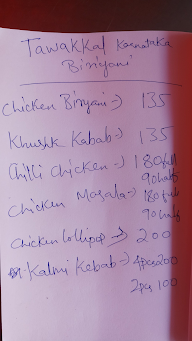 Tawakkal Karnataka
Biriyani
Chicken Biryani -> 135
Khushk Kabab -> 135
Chilli Chicken -> 180 full
90 half
Chicken Masala -> 180 full
90 half
Chicken Lollipop -> 200
Kalmi Kebab -> 4pcs 200
2pcs 100